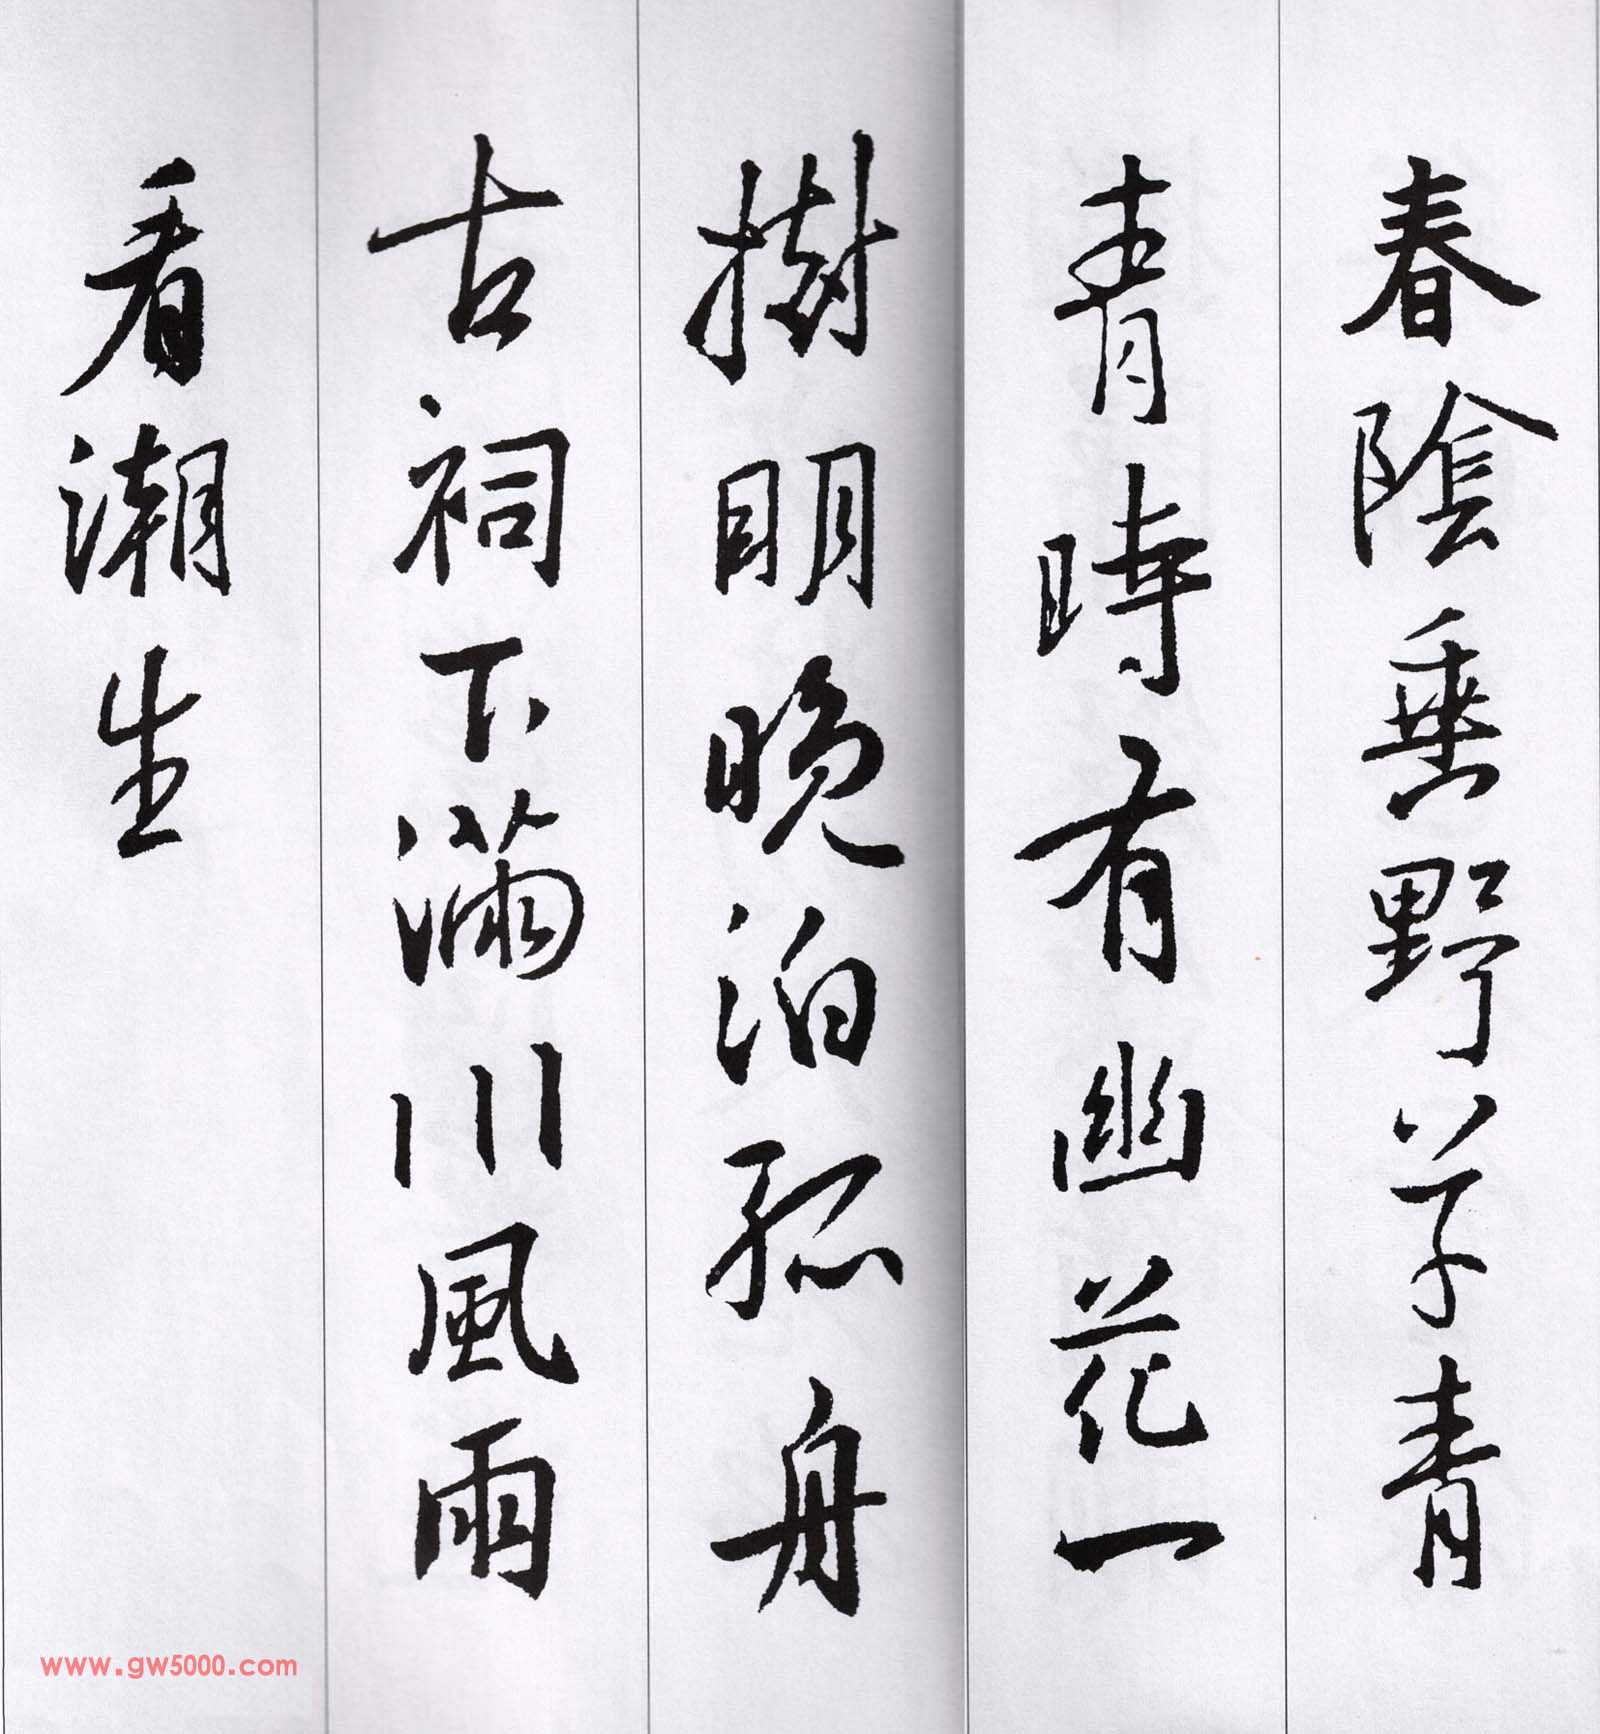 春陰垂野草青
青時有幽花一
樹明晚泊孤舟
古祠下滿川風雨
看潮生
www.gw5000.com